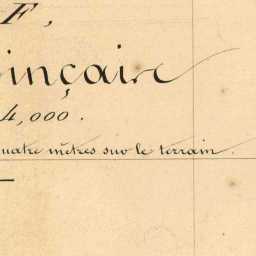 F,
inçaire
4,000.
quatre mètres sur le terrain.